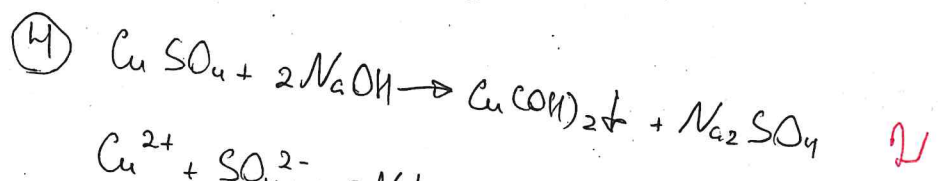 4 CuSO₄ + 2NaOH → Cu(OH)₂↓ + Na₂SO₄
Cu²⁺ + SO₄²⁻